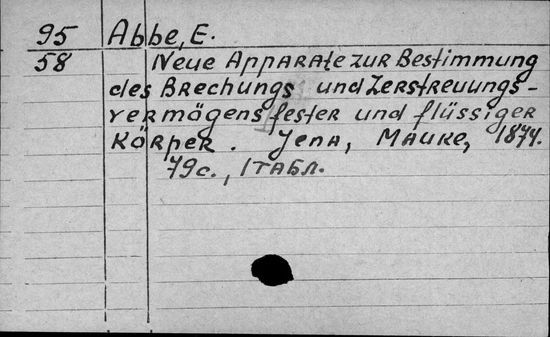 95 Abbe, E.
58 Neue Apparate zur Bestimmung
des Brechungs und Zerstreuungs-
vermögens fester und flüssiger
Körper. Jena, Mauke, 1874.
79с., 1 табл.